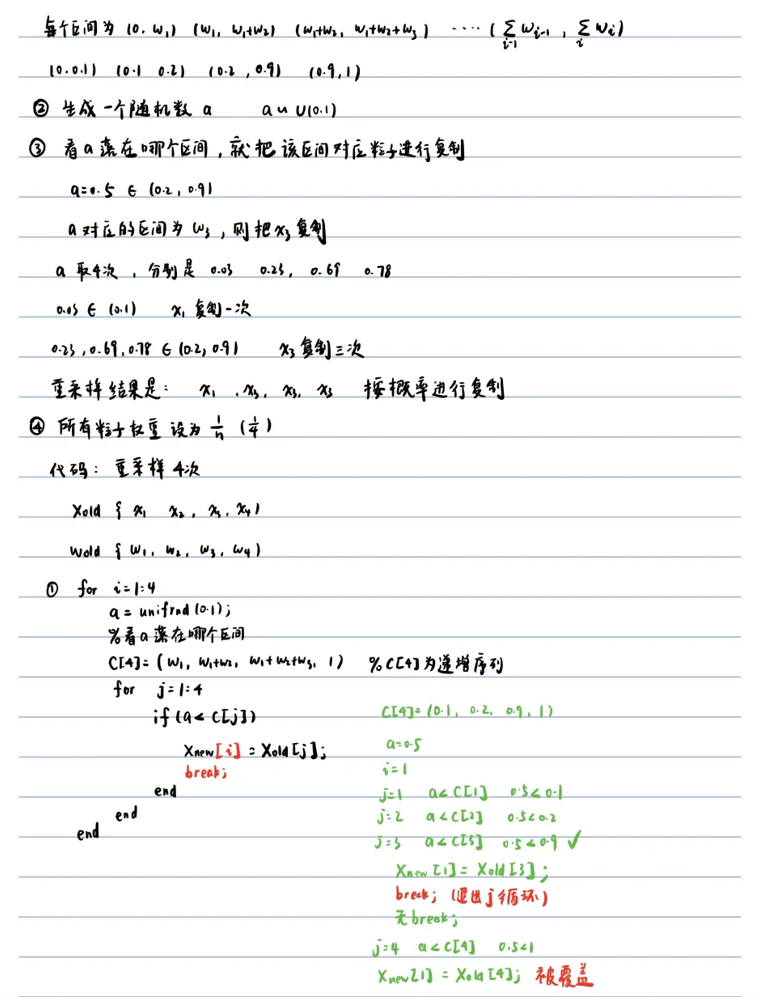 每个区间为 (0, w₁) (w₁, w₁+w₂) (w₁+w₂, w₁+w₂+w₃) ···· (∑ᵢ₋₁ wᵢ₋₁, ∑ᵢ wᵢ)
(0, 0.1) (0.1 0.2) (0.2, 0.9) (0.9, 1)
② 生成一个随机数 a a ~ U(0.1)
③ 看a落在哪个区间, 就把该区间对应粒子进行复制
a=0.5 ∈ (0.2, 0.9)
a对应的区间为 w₃, 则把x₃复制
a 取4次, 分别是 0.03 0.23, 0.69 0.78
0.03 ∈ (0.1) x₁复制一次
0.23, 0.69, 0.78 ∈ (0.2, 0.9) x₃复制三次
重采样结果是: x₁, x₃, x₃, x₃ 按概率进行复制
④ 所有粒子权重设为 1/n (1/4)
代码: 重采样4次
Xold { x₁ x₂, x₃, x₄)
Wold { w₁, w₂, w₃, w₄)
① for i=1:4
a = unifrnd(0.1);
%看a落在哪个区间
C[4]=(w₁, w₁+w₂, w₁+w₂+w₃, 1) %C[4]为递增序列
for j=1:4
if(a<C[j])
Xnew[i]=Xold[j];
break;
end
end
end
C[4]=(0.1, 0.2, 0.9, 1)
a=0.5
i=1
j=1 a<C[1] 0.5<0.1
j=2 a<C[2] 0.5<0.2
j=3 a<C[3] 0.5<0.9 ✓
Xnew[1]=Xold[3];
break; (退出j循环)
无break;
j=4 a<C[4] 0.5<1
Xnew[1]=Xold[4]; 被覆盖